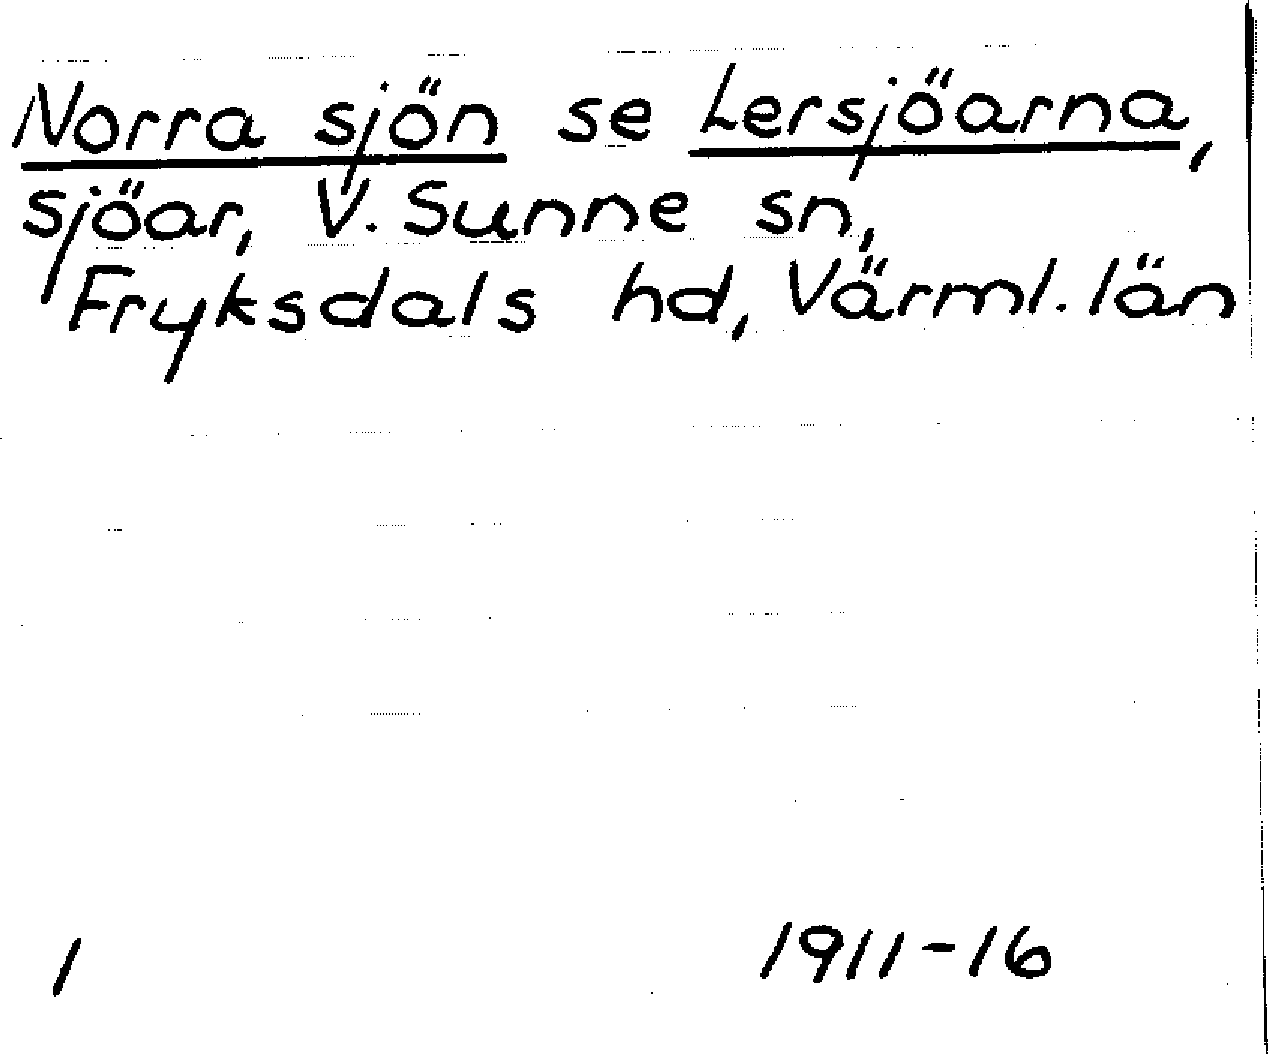 Norra sjön se Lersjöarna,
sjöar, V. Sunne sn,
Fryksdals hd, Värml. län
1 1911-16